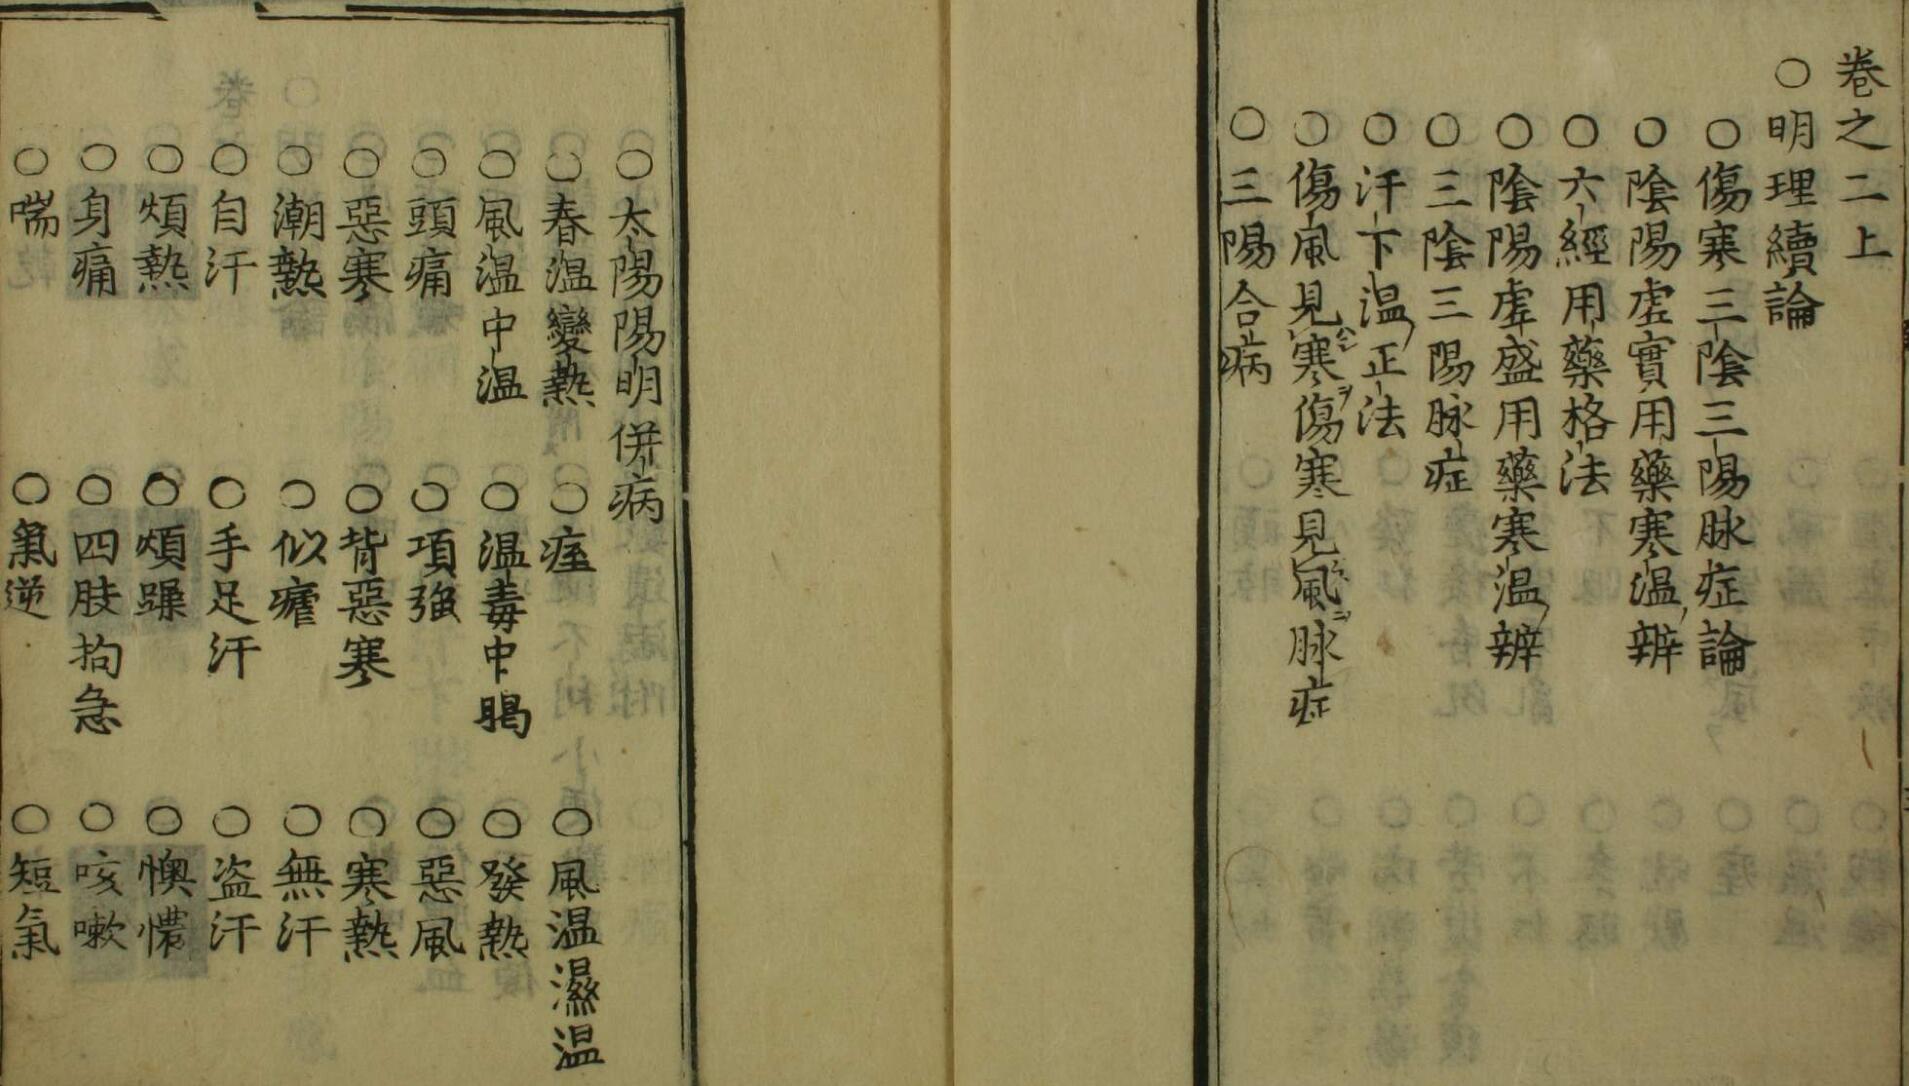 卷之二上
○明理續論
○傷寒三陰三陽脉症論
○陰陽虛實用藥寒温辨
○六經用藥格法
○陰陽虛盛用藥寒温辨
○三陰三陽脉症
○汗下温正法
○傷風見寒傷寒見風脉症
○三陽合病
○太陽陽明併病
○春温變熱 ○痓 ○風温濕温
○風温中温 ○温毒中暍 ○發熱
○頭痛 ○項強 ○惡風
○惡寒 ○背惡寒 ○寒熱
○潮熱 ○似瘧 ○無汗
○自汗 ○手足汗 ○盗汗
○煩熱 ○煩躁 ○懊憹
○身痛 ○四肢拘急 ○咳嗽
○喘 ○氣逆 ○短氣